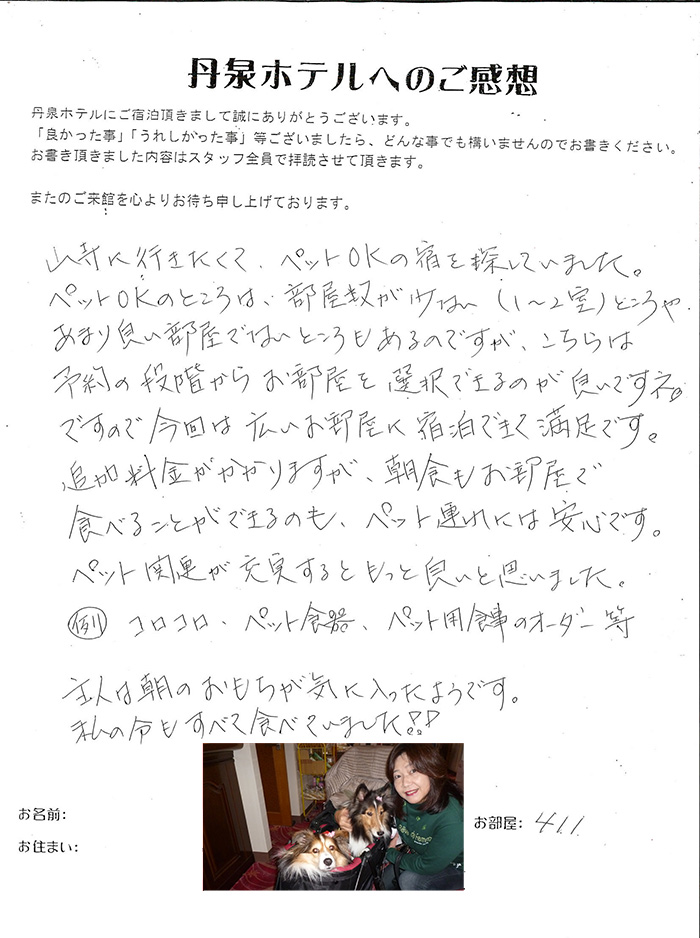 丹泉ホテルへのご感想
丹泉ホテルにご宿泊頂きまして誠にありがとうございます。
「良かった事」「うれしかった事」等ございましたら、どんな事でも構いませんのでお書きください。
お書き頂きました内容はスタッフ全員で拝読させて頂きます。
またのご来館を心よりお待ち申し上げております。
山寺に行きたくて、ペットOKの宿を探していました。
ペットOKのところは、部屋数が少ない(1〜2室)ところや
あまり良い部屋ではないところもあるのですが、こちらは
予約の段階からお部屋を選択できるのが良いですネ。
ですので今回は広いお部屋に宿泊できて満足です。
追加料金がかかりますが、朝食もお部屋で
食べることができるのも、ペット連れには安心です。
ペット関連が充実するともっと良いと思いました。
例 コロコロ、ペット食器、ペット用食事のオーダー等
主人は朝のおもちが気に入ったようです。
私の分もすべて食べていました!!
お名前:
お部屋: 411
お住まい: